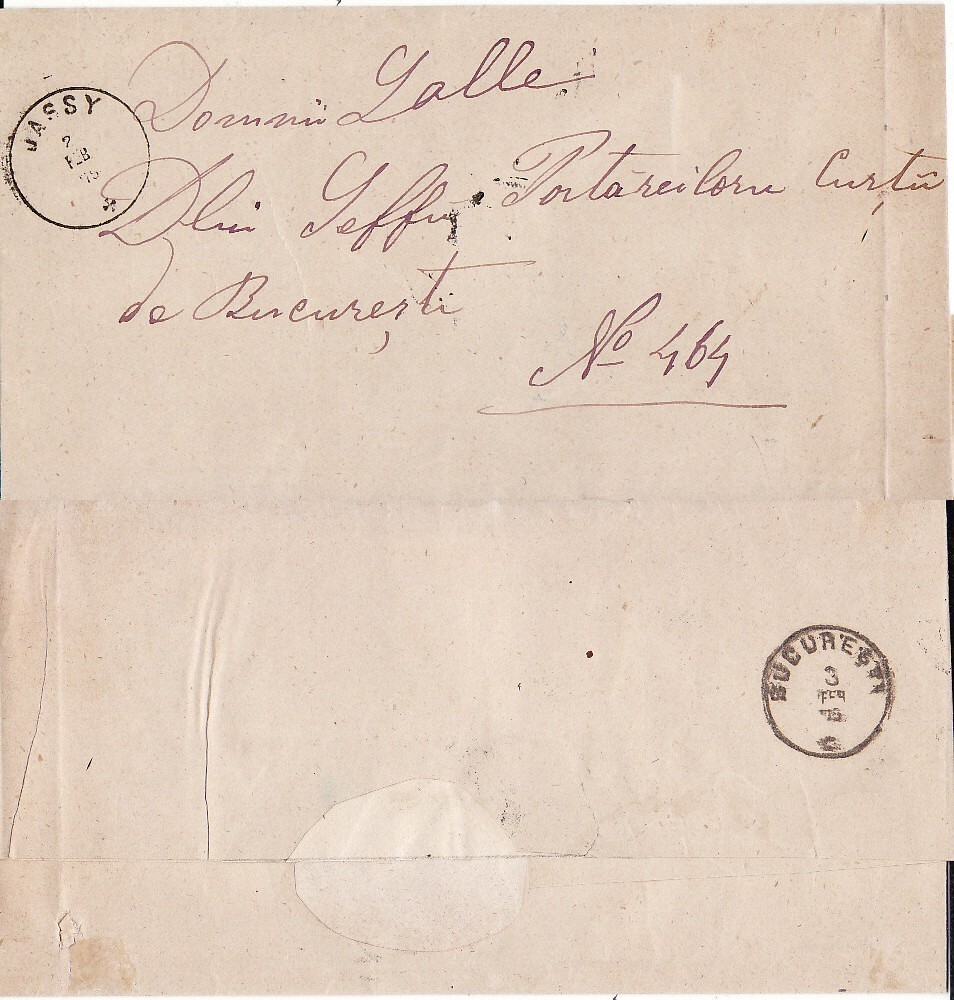 JASSY
2
FEB
75
Domnii Salle
Dlui Seffu Portăreiloru Curtii
de Bucureşti
No 464
BUCUREŞTI
3
FEB
75